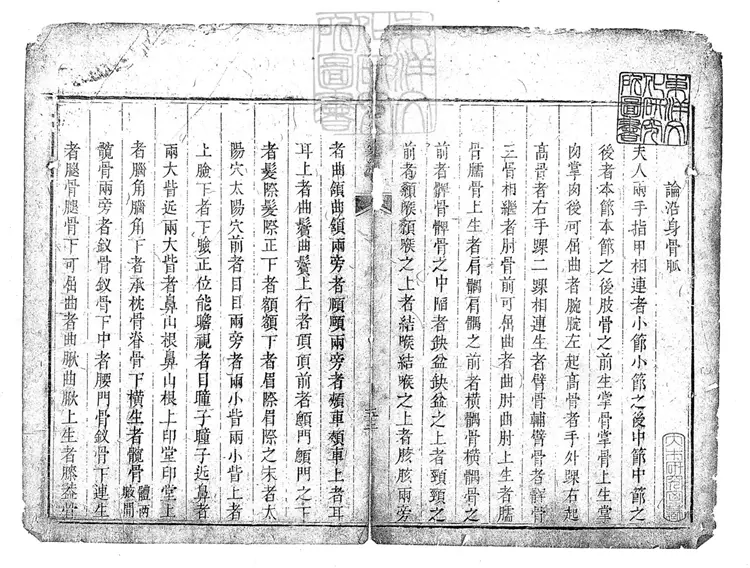 論沿身骨脈
夫人兩手指甲相連者小節小節之後中節中節之
後者本節本節之後肢骨之前生掌骨掌骨上生掌
肉掌肉後可屈曲者腕腕左起高骨者手外踝右起
高骨者右手踝二踝相連生者臂骨輔臂骨者髀骨
三骨相繼者肘骨前可屈曲者曲肘曲肘上生者臑
骨臑骨上生者肩髃肩髃之前者橫髃骨橫髃骨之
前者髀骨髀骨之中陷者缺盆缺盆之上者頸頸之
前者顙喉顙喉之上者結喉結喉之上者胲胲兩旁
者曲頷曲頷兩旁者頤頤兩旁者頰車頰車上者耳
耳上者曲鬢曲鬢上行者頂頂前者顖門顖門之下
者髮際髮際正下者額額下者眉際眉際之末者太
陽穴太陽穴前者目目兩旁者兩小眥兩小眥上者
上臉下者下臉正位能瞻視者目瞳子瞳子近鼻者
兩大眥近兩大眥者鼻山根鼻山根上印堂印堂上
者腦角腦角下者承枕骨脊骨下橫生者髖骨
髖骨兩旁者釵骨釵骨下中者腰門骨釵骨下連生
者腿骨腿骨下可屈曲者曲䐐曲䐐上生者膝蓋骨
東洋文
化研究
所圖書